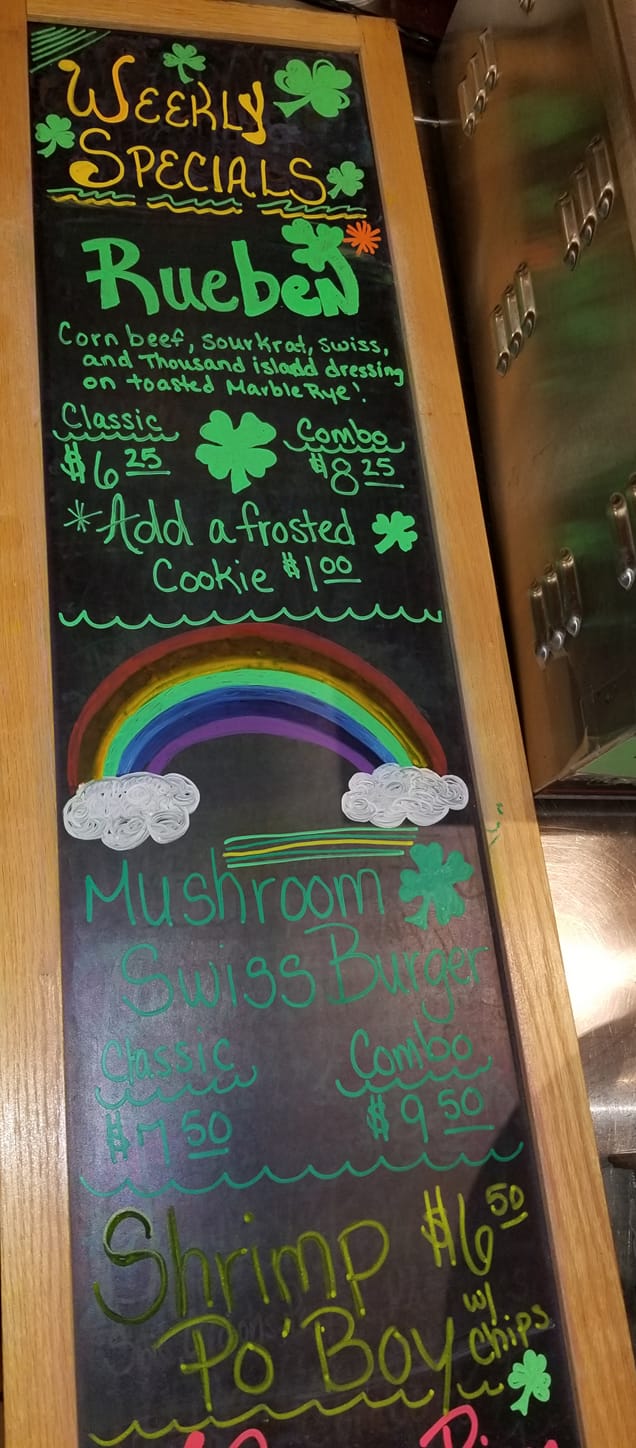 Weekly
Specials
Rueben
Corn beef, sourkrat, swiss,
and Thousand isladd dressing
on toasted Marble Rye!
Classic Combo
$6 25 $8 25
*Add a frosted
Cookie $1 00
Mushroom
Swiss Burger
Classic Combo
$7 50 $9 50
Shrimp $6 50
Po' Boy w/ Chips